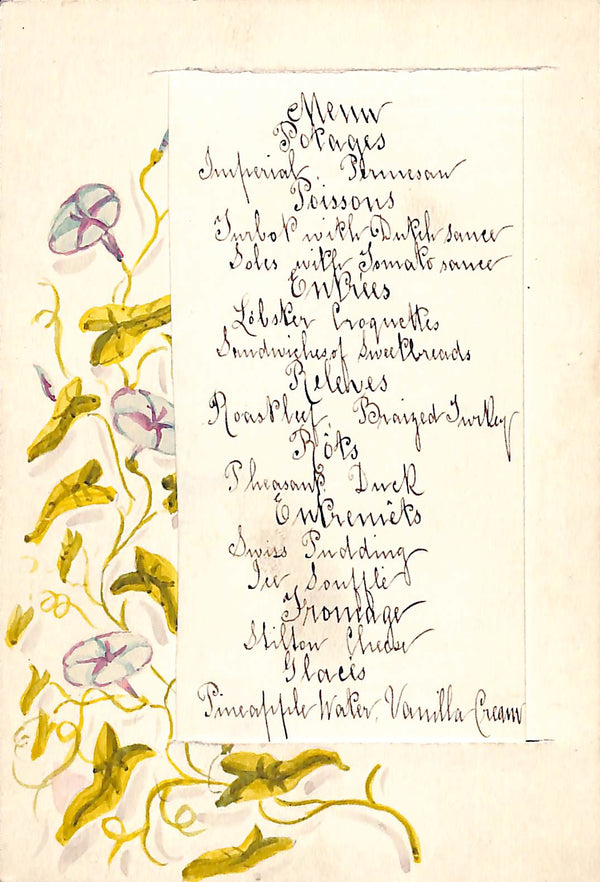 Menu
Potages
Imperial. Permesan
Poissons
Turbot with Dutch sauce
Soles with Tomato sauce
Entrées
Lobster Croquettes
Sandwiches of Sweetbreads
Releves
Roastbeef. Braized Turkey
Rôts
Pheasant Duck
Entremêts
Swiss Pudding
Ice Soufflé
Fromage
Stilton Cheese
Glacés
Pineapple Water. Vanilla Cream